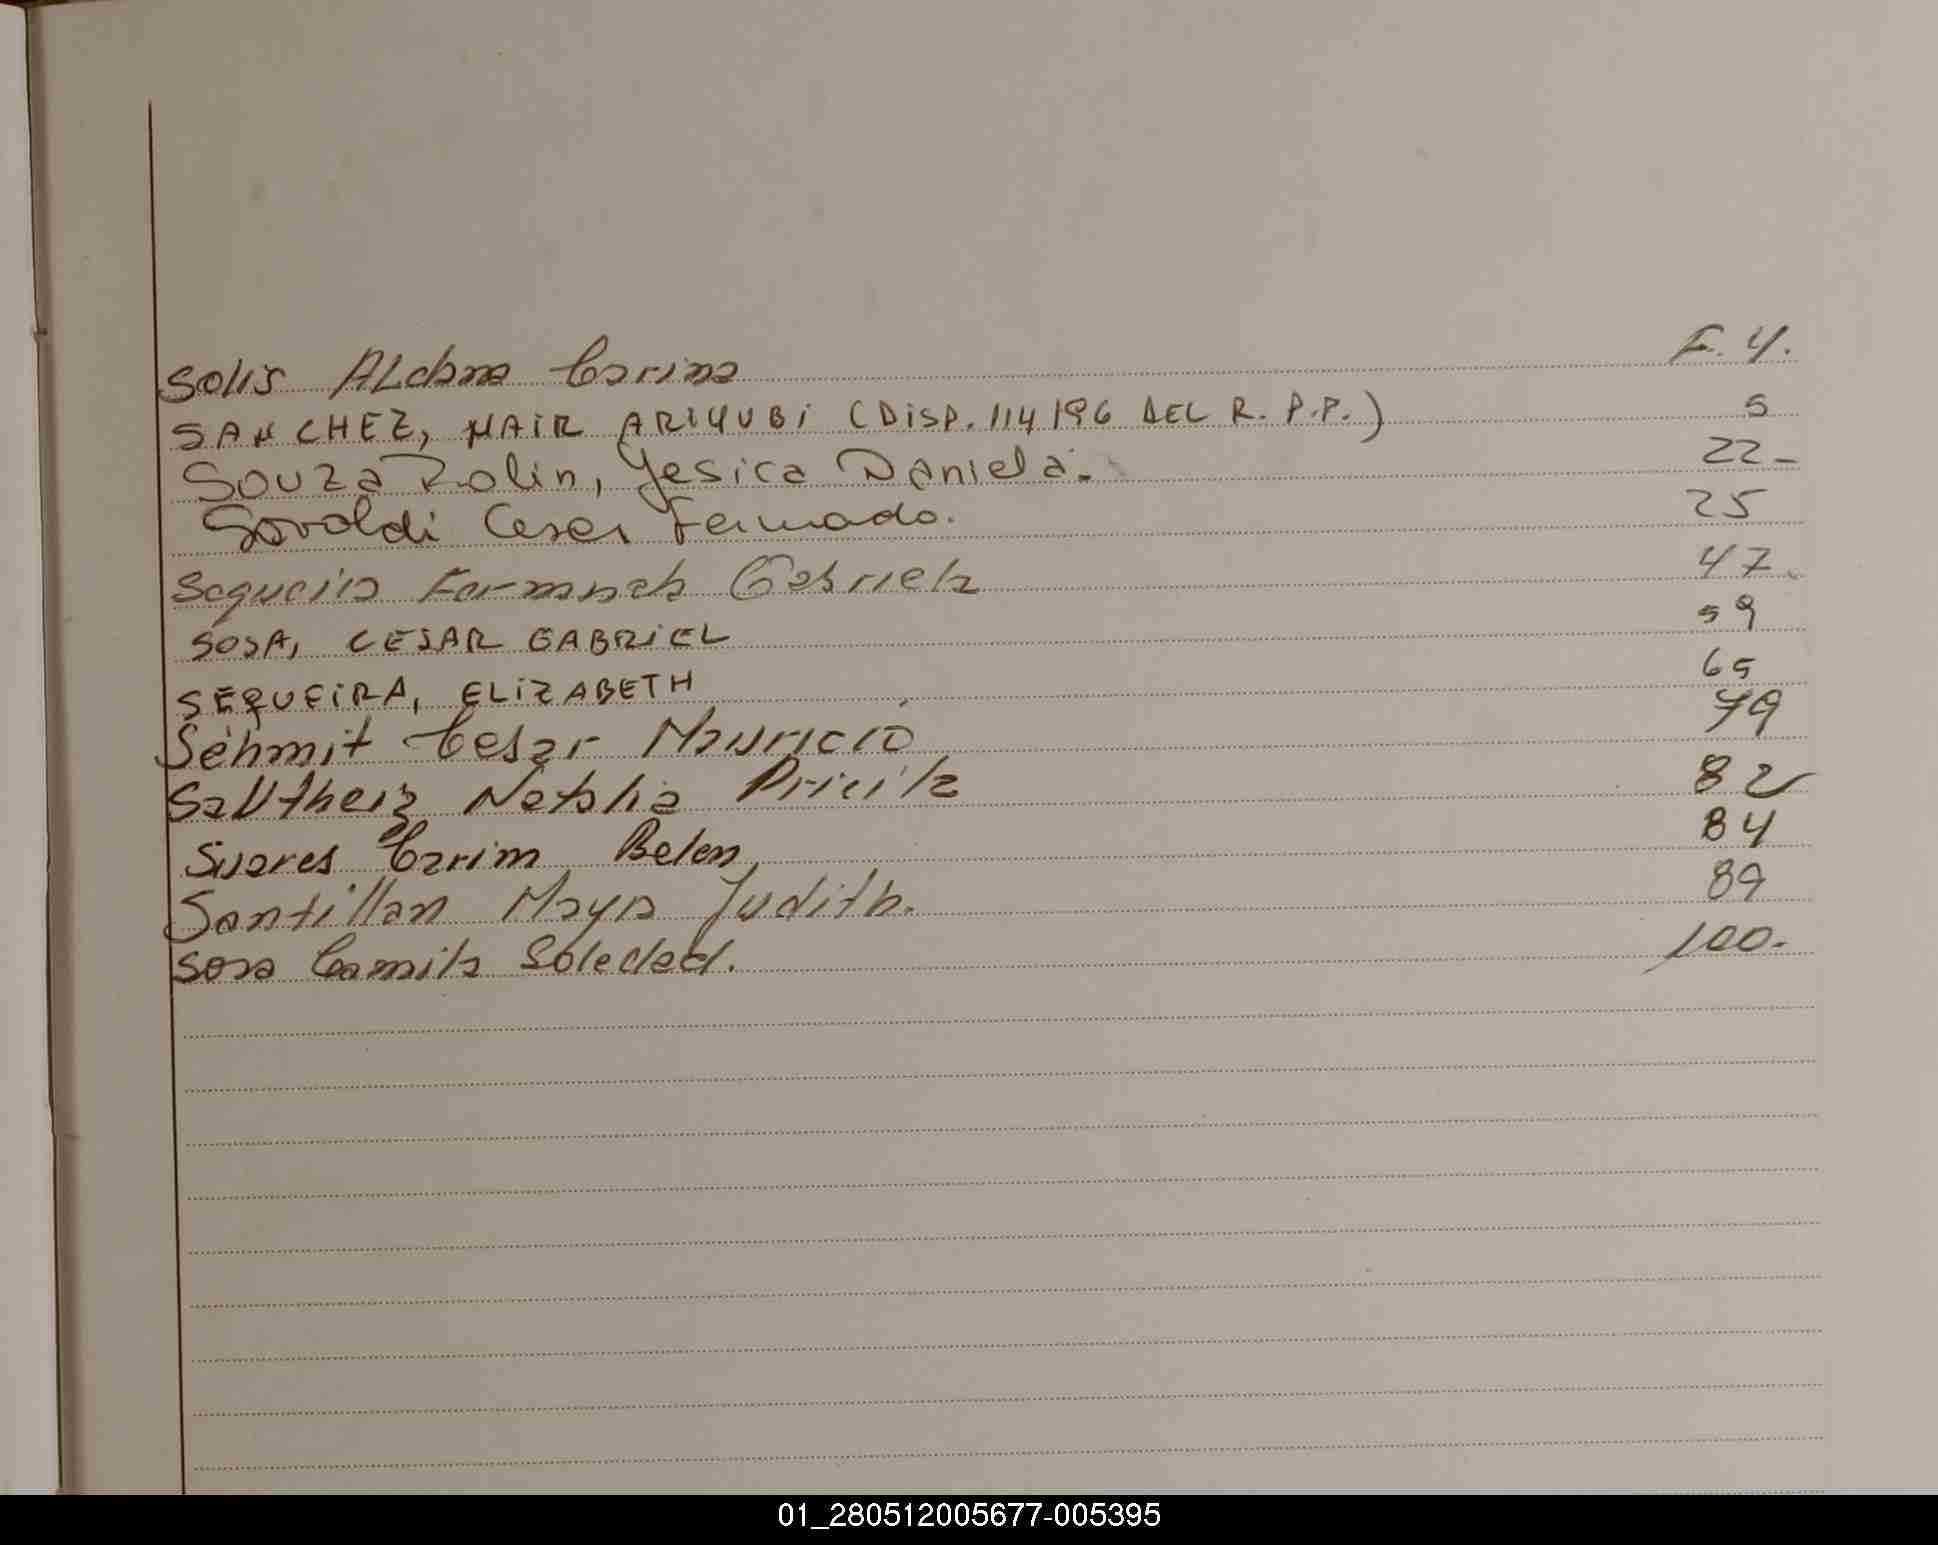 Solis Aldana Carina F. 4.
SANCHEZ, NAIR ARIYUBI (DISP. 114/96 DEL R. P.P.) 5
Souza Rolin, Yesica Daniela. 22-
Savoldi Cesar Fernando. 25
Sequeira Fernanda Gabriela 47
SOSA, CESAR GABRIEL 59
SEQUEIRA, ELIZABETH 65
Sehmit Cesar Mauricio 79
Natalia 82
Suares Carim Belen 84
Santillan Mayra Judith. 89
Sosa Camila Soledad. 100.
01_280512005677-005395